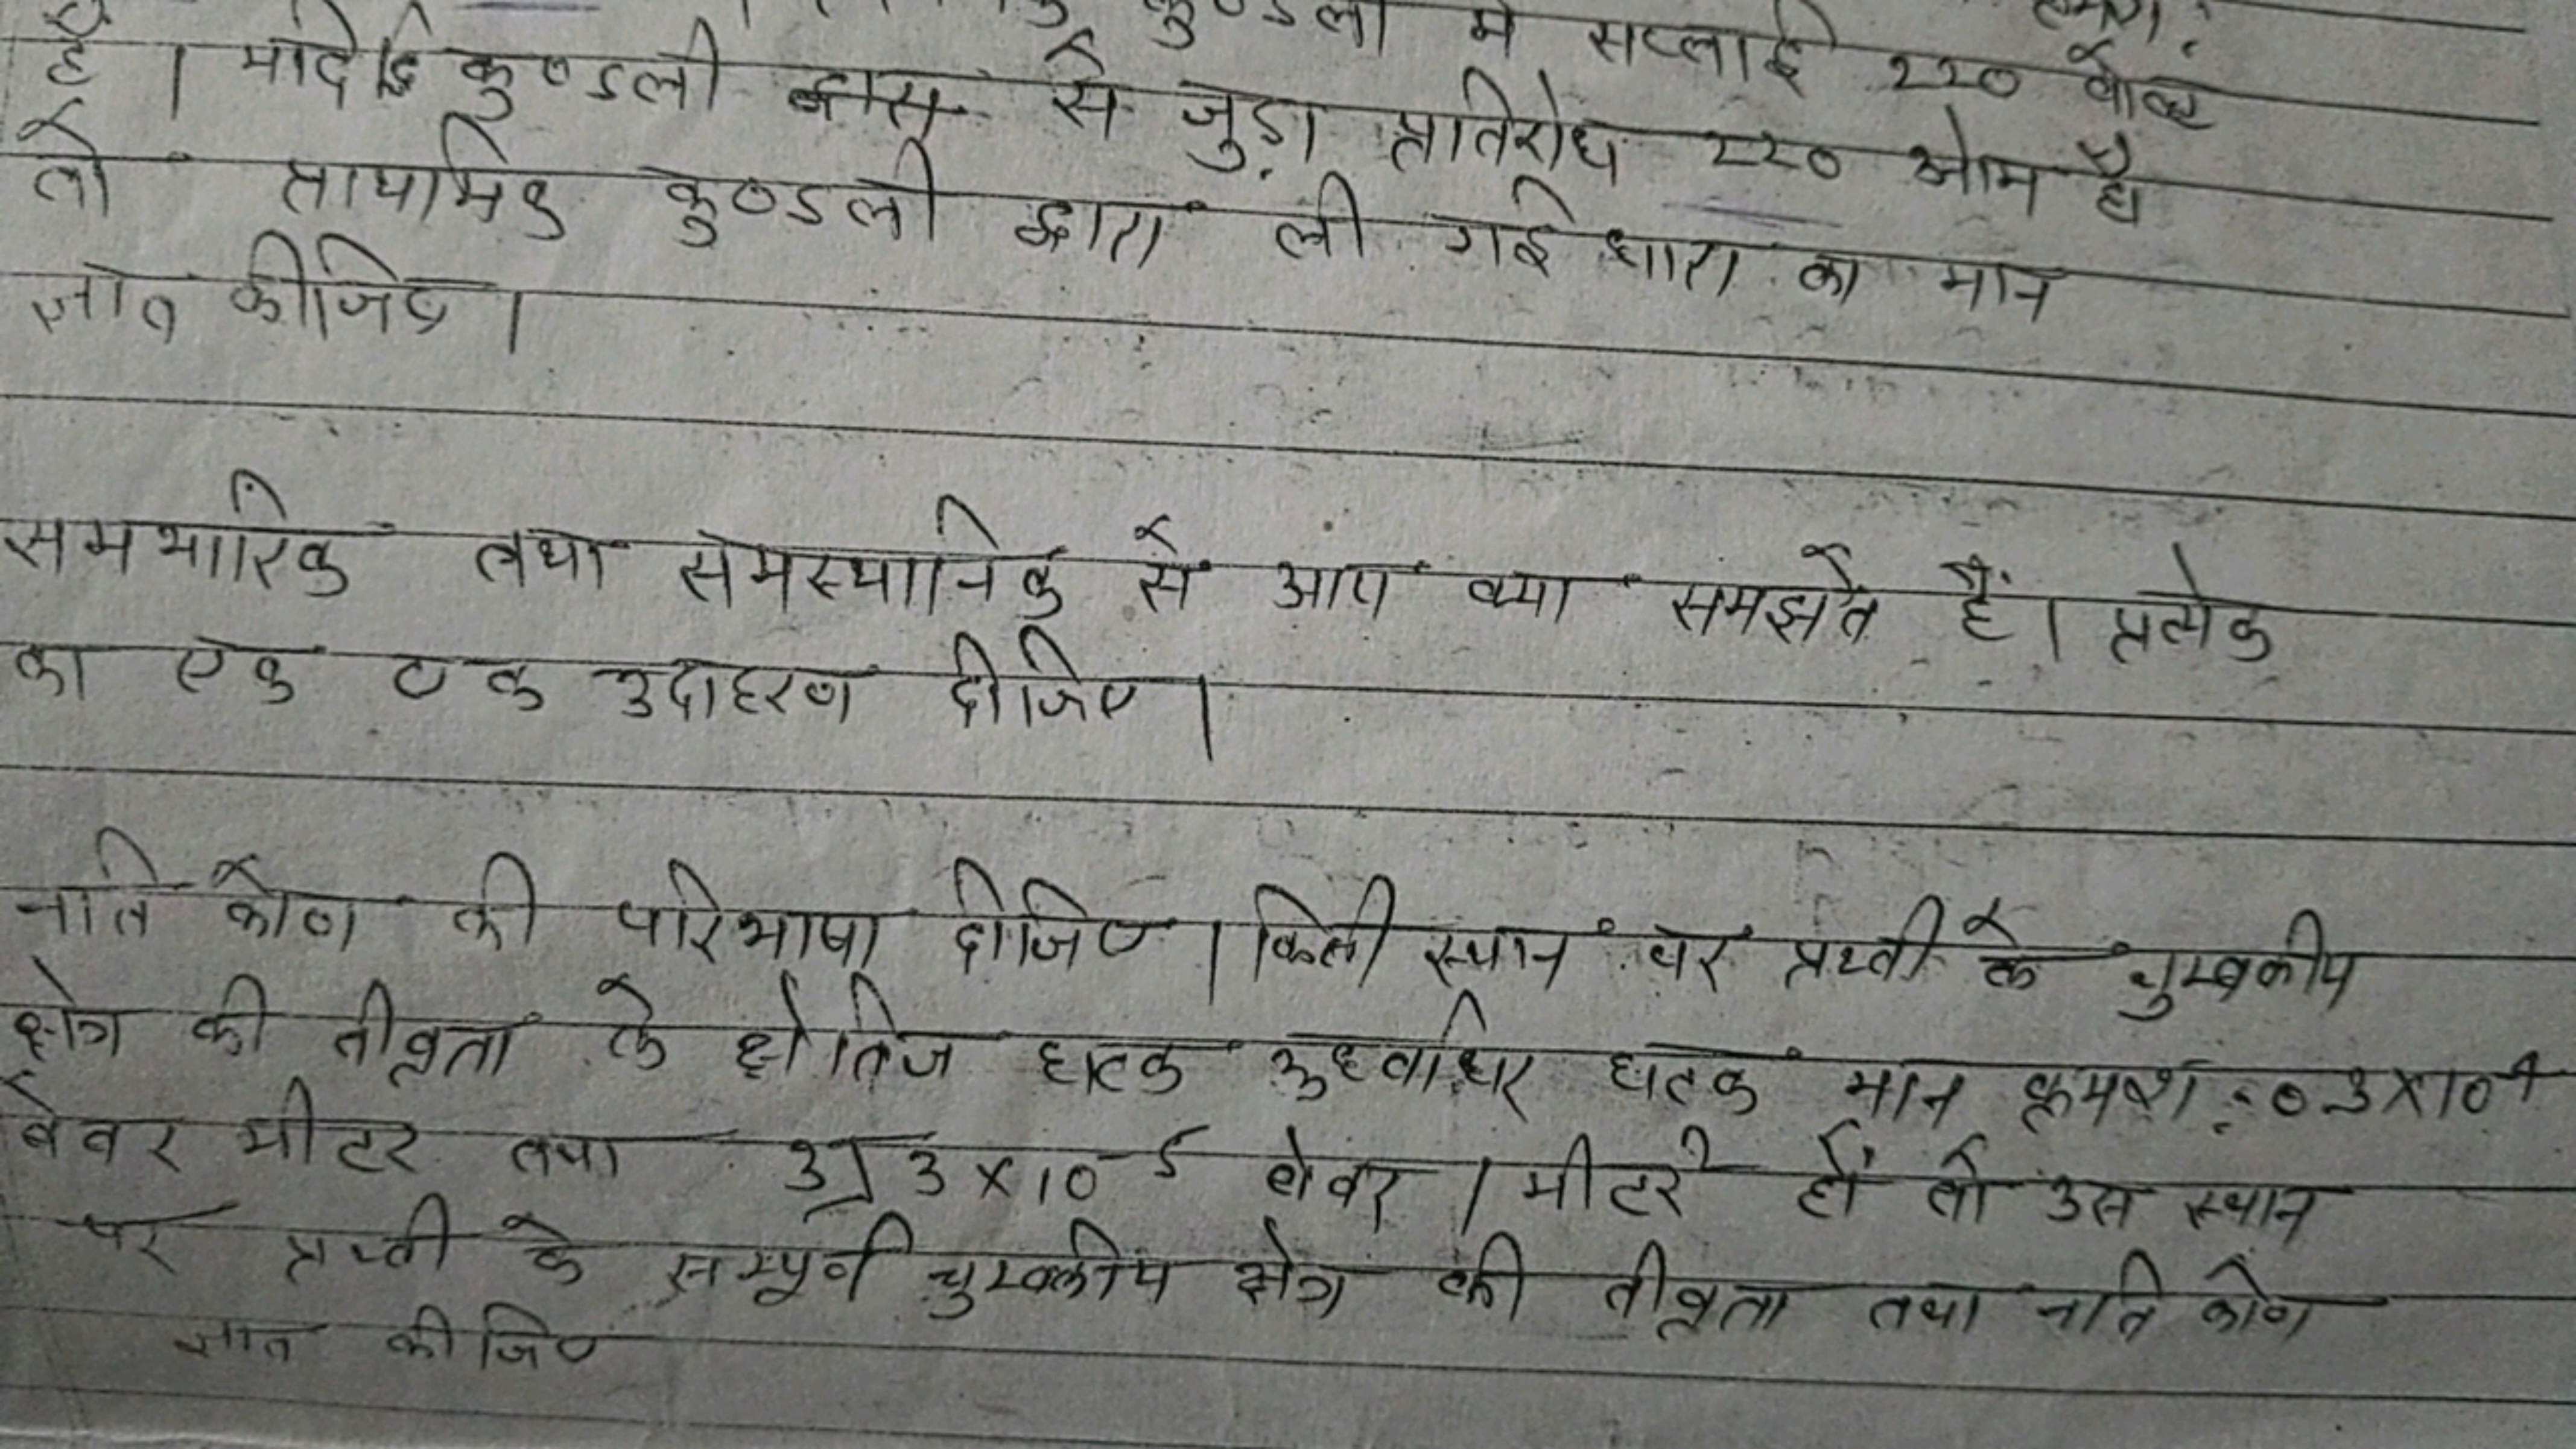 कुण्डली में सप्लाई 220 वोल्ट
है। यदि कुण्डली से जुड़ा प्रतिरोध 220 ओम है
तो प्राथमिक कुण्डली द्वारा ली गई धारा का मान
ज्ञात कीजिए।
समभारिक तथा समस्थानिक से आप क्या समझते हैं। प्रत्येक
का एक एक उदाहरण दीजिए।
नति कोण की परिभाषा दीजिए। किसी स्थान पर प्रथ्वी के चुम्बकीय
क्षेत्र की तीव्रता के क्षेतिज घटक उध्वाधर घटक मान क्रमश: 0.3×10⁻⁴
वेबर मीटर तथा 3√3×10⁻⁵ वेबर/मीटर² हों तो उस स्थान
पर प्रथ्वी के सम्पूर्ण चुम्बकीय क्षेत्र की तीव्रता तथा नति कोण
ज्ञात कीजिए